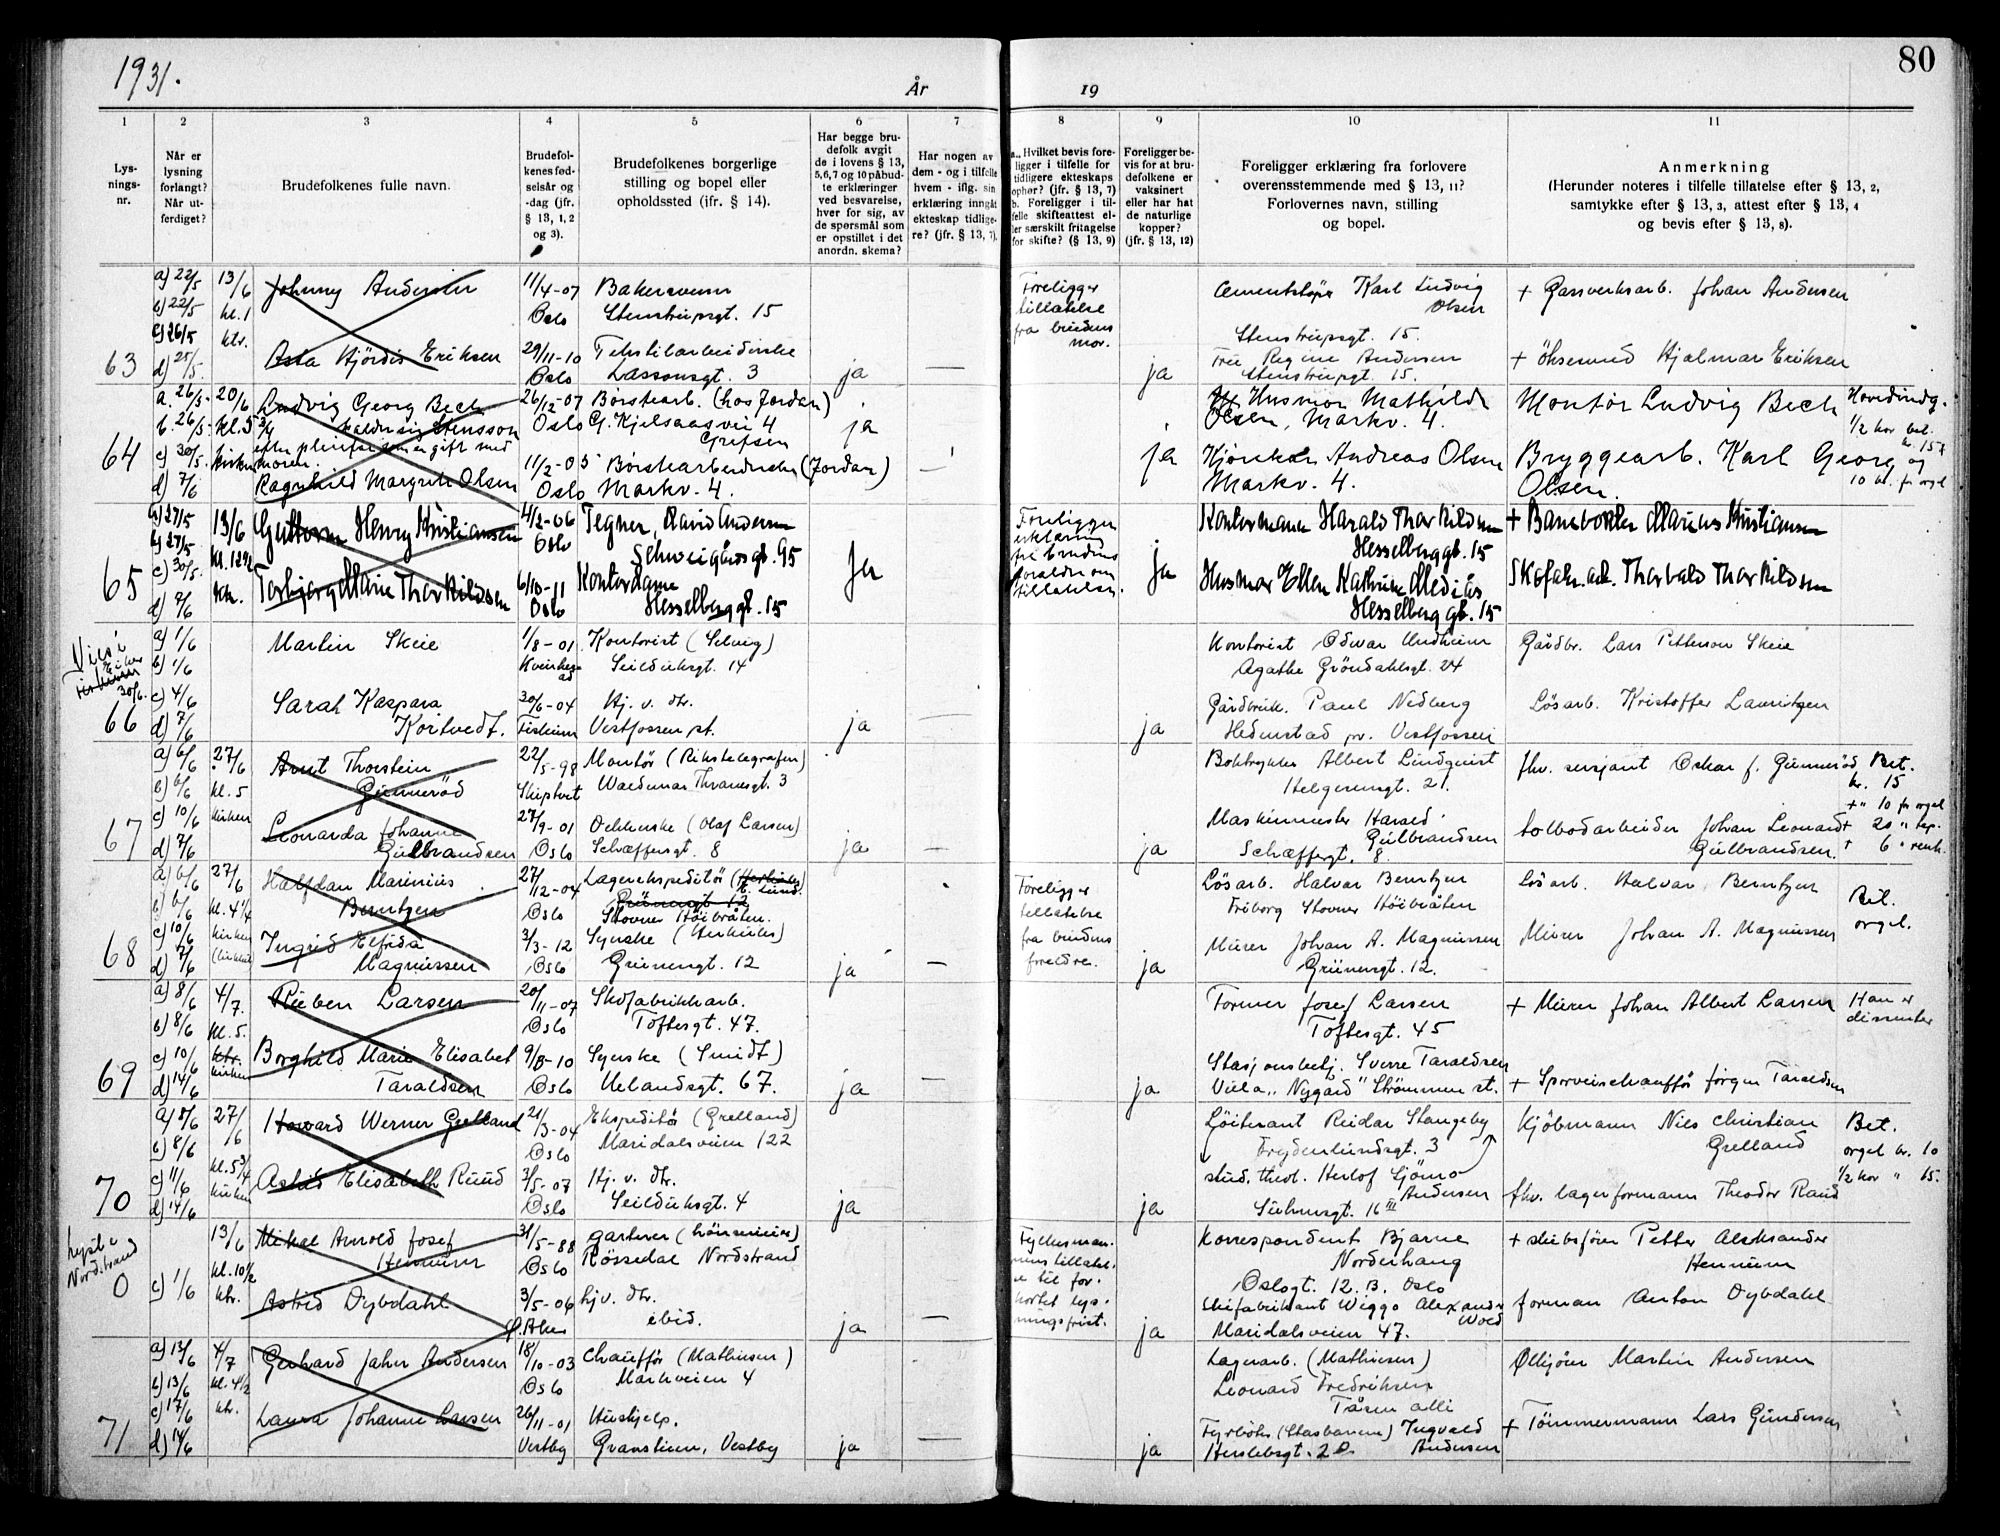 1931.
År
19
80
1
2
3
4
5
6
7
8
9
10
11
Lys-
nings-
nr.
Når er
lysning
forlangt?
Når ut-
ferdiget?
Brudefolkenes fulle navn.
Brudefol-
kenes fød-
selsår og
-dag (jfr.
§ 13, 1, 2
og 3).
Brudefolkenes borgerlige
stilling og bopel eller
opholdssted (ifr. § 14).
Har begge bru-
defolk avgit
de i lovens § 13,
5, 6, 7 og 10 påbud-
te erklæringer
ved besvarelse,
hver for sig, av
de spørsmål som
er opstillet i det
anordn. skema?
Har nogen av
dem - og i tilfelle
hvem - iflg. sin
erklæring inngåt
ekteskap tidlige-
re? (jfr. § 13, 7).
a. Hvilket bevis fore-
ligger i tilfelle for
tidligere ekteskaps
ophør? (jfr. § 13, 7)
b. Foreligger i til-
felle skifteattest el-
ler særskilt fritagelse
for skifte? (§ 13, 9)
Foreligger be-
vis for at bru-
defolkene er
vaksinert
eller har hat
de naturlige
kopper?
(jfr. § 13, 12)
Foreligger erklæring fra forlovere
overensstemmende med § 13, 11?
Forlovernes navn, stilling
og bopel.
Anmerkning
(Herunder noteres i tilfelle tillatelse efter § 13, 2,
samtykke efter § 13, 3, attest efter § 13, 4
og bevis efter § 13, 8).
63
a) 22/5
b) 22/5
c) 26/5
d) 25/5
13/6
kl. 1
ktr.
Johnny Andersen
Asta Hjördis Eriksen
11/4-07
Oslo
29/11-10
Oslo
Bakersvenn
Stenstrupsgt. 15
Tekstilarbeiderske
Lassonsgt. 3
ja
—
Foreligger
tillatelse
fra brudens
mor.
ja
Cementstøper Karl Ludvig
Olsen
Stenstrupsgt. 15.
Fru Regine Andersen
Stenstrupsgt. 15.
+ Gassverksarb. Johan Andersen
+ Öksesmed Hjalmar Eriksen
64
a. 26/5
b. 26/5
c) 30/5
d) 7/6
20/6
kl. 5 3/4
kirken
Ludvig Georg Bech
kalder sig Stensson
efter pleiefar som er gift med
moren.
Ragnhild Margrete Olsen
26/12-07
Oslo
11/2-05
Oslo
Börstearb. (hos Jordan)
G. Kjelsaasvei 4
Grefsen
Börstearbeiderske (Jordan)
Markv. 4.
ja
—
ja
Husmor Mathilde
Olsen, Markv. 4.
Hjörekar Andreas Olsen
Markv. 4.
Montør Ludvig Bech
Bryggearb. Karl Georg
Olsen.
1/2 kor bet.
kr. 15
og
10 kr. fr orgel
65
a) 27/5
b) 27/5
c) 30/5
d) 7/6
13/6
kl. 12 1/2
ktr.
Guttorm Henry Kristiansen
Torbjørg Marie Thorkildsen
4/2-06
Oslo
6/10-11
Oslo
Tegner, David Andersen
Schweigårdsgt. 95
Kontordame
Hesselberggt. 15
Ja
Foreligger
erklæring
fra brudens
foreldre om
tillatelse.
ja
Kontormann Harald Thorkildsen
Hesselberggt. 15
Husmor Ellen Kathrine Mediås
Hesselberggt. 15
+ Banevokter Marius Kristiansen
Skofabr.arb. Thorvald Thorkildsen
Vies i
Eiker
Fiskum
30/6.
66
a) 1/6
b) 1/6
c) 4/6
d) 7/6
Martin Skeie
Sarah Kaspara
Kortvedt.
1/8-01
30/6-04
Fiskum
Kontorist (Selvig)
Seilduksgt. 14
Hj. v. dtr.
Vestfossen st.
ja
—
ja
Kontorist Odvar Undheim
Agathe Gröndahlsgt. 24
Gårdbruk. Paul Nedberg
Hedenstad pr. Vestfossen
Gårdbr. Lars Petterson Skeie
Lösarb. Kristoffer Lauritzen
67
a) 6/6
b) 6/6
c) 10/6
d) 7/6
27/6
kl. 5
kirken
Arnt Thorstein
Gunneröd
Leonarda Johanne
Gulbrandsen
22/5-98
Skiptvet
27/9-01
Oslo
Montör (Rikstelegrafen)
Waldemar Thranesgt. 3
Dekkerske (Olaf Larsen)
Schæffersgt. 8
ja
—
ja
Boktrykker Albert Lindquist
Helgesensgt. 21.
Maskinmester Harald
Gulbrandsen
Schæffergt. 8
fhv. sersjant Oskar J. Gunneröd
tolbodarbeider Johan Leonard
Gulbrandsen.
Bet.
kr. 15
+ " 10 fr orgel
+ 20 " tep.
+ 6 " renh.
68
a) 6/6
b) 6/6
c) 10/6
d) 7/6
27/6
kl. 4 1/4
kirken
Halfdan Marinius
Berntzen
Ingrid Elfrida
Magnussen
27/12-04
Oslo
3/3-12
Oslo
Lagerekspeditör
Grünersgt 12
Stovner Höibråten.
Syerske (Herkules)
Grünersgt. 12
ja
—
Foreligger
tillatelse
fra brudens
foreldre.
ja
Lösarb. Halvar Berntzen
Friborg Stovner Höibråten
Murer Johan A. Magnussen
Grünersgt. 12.
Lösarb. Halvar Berntzen
Murer Johan A. Magnussen
Bet.
orgel.
69
a) 8/6
b) 8/6
c) 10/6
d) 14/6
4/7.
kl. 5.
ktr.
kirken
Ruben Larsen
Borghild Marie Elisabet
Taraldsen
20/11-07
Oslo
9/8-10
Oslo
Skofabrikkarb.
Toftesgt. 47.
Syerske (Smidt)
Uelandsgt. 67.
ja
—
ja
Former Josef Larsen
Toftesgt. 45
Stasjonsbetj. Sverre Taraldsen
Villa "Nygård" Strömmen st.
+ Murer Johan Albert Larsen
+ Sporveischauffør Jörgen Taraldsen
Han er
dissenter
70
a) 8/6
b) 8/6
c) 11/6
d) 14/6
27/6
kl. 5 3/4
kirken
Howard Werner Grelland
Astrid Elisabeth Ruud
21/3-04
Oslo
3/5-07
Oslo
Ekspeditör (Grelland)
Maridalsveien 122
Hj. v. dtr.
Seilduksgt. 4
ja
—
ja
Löitenant Reidar Stangeby
Frydenlundsgt. 3
stud. theol. Herlof Sjömo
Andersen
Suhmsgt. 16 III
Kjöbmann Nils Christian
Grelland
fhv. lagerformann Theodor Ruud
Bet.
orgel kr. 10
1/2 kor " 15.
Lyst i
Nordstrand
0
c) 1/6
13/6
kl. 10 1/2
ktr.
Mikal Arnold Josef
Hennum
Astrid Dybdahl
31/5-88
Oslo
3/5-06
V. Aker
gartner
Rössedal Nordstrand
hj. v. dtr.
ibid.
ja
—
Fylkesman-
nens tillatel-
se til for-
kortet lys-
ningsfrist.
ja
Korrespondent Bjarne
Norderhaug
Oslogt. 12. B. Oslo
Skofabrikant Wiggo Alexander
Wold
Maridalsveien 47.
+ skibsförer Petter Aleksander
Hennum
Forman Anton Dybdahl
71
a) 13/6
b) 13/6
c) 17/6
d) 14/6
4/7
kl. 4 1/2
ktr.
Gerhard Jahn Andersen
Laura Johanne Larsen
18/10-03
Oslo
26/11-01
Vestby
Chaufför (Mathisen)
Markveien 4
Hushjelp.
Granstuen, Vestby
ja
—
ja
Lagerarb. (Mathisen)
Leonard Fredriksen
Tåsen allé
Fyrböter (Statsbanene) Ingvald
Andersen
Herslebsgt. 20
Ølkjörer Martin Andersen
+ Tömmermann Lars Gundersen